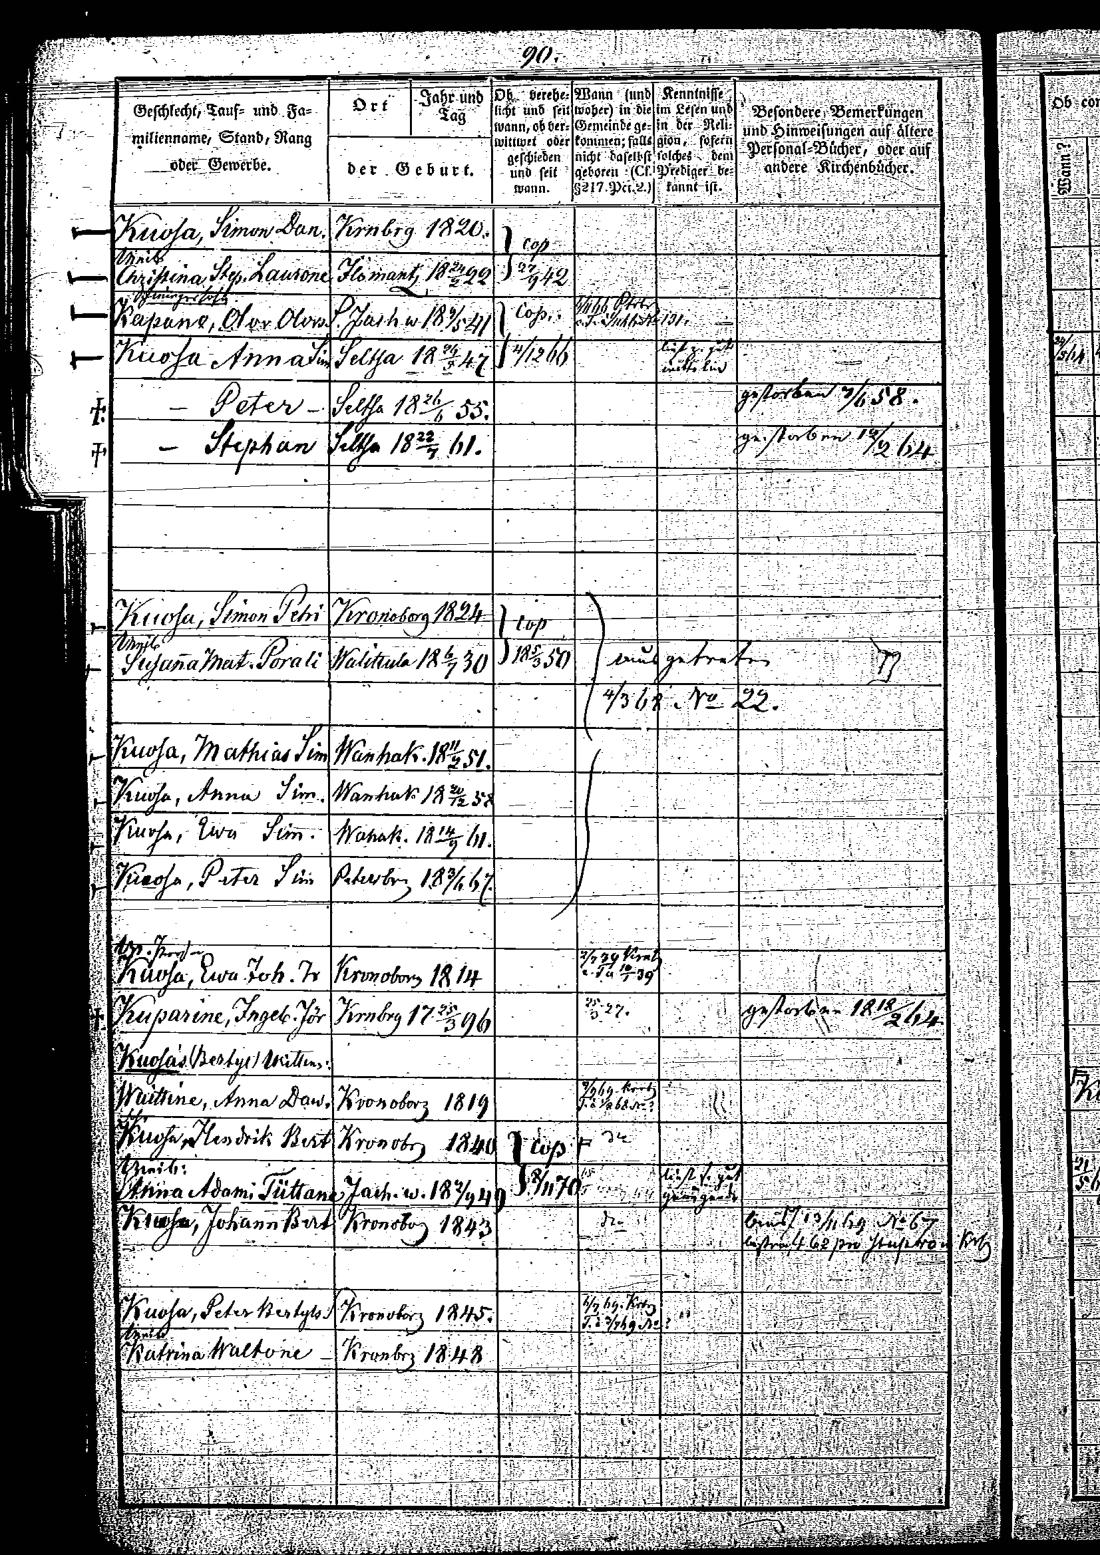 90.
Geschlecht, Tauf- und Fa-
milienname, Stand, Rang
oder Gewerbe.
Ort
Jahr und
Tag
der Geburt.
Ob verehe-
licht und seit
wann, ob ver-
wittwet oder
geschieden
und seit
wann.
Wann (und
woher) in die
Gemeinde ge-
kommen; falls
nicht daselbst
geboren (Cf.
§217. Pct. 2.)
Kenntnisse
im Lesen und
in der Reli-
gion, sofern
solches dem
Prediger be-
kannt ist.
Besondere Bemerkungen
und Hinweisungen auf ältere
Personal-Bücher, oder auf
andere Kirchenbücher.
Ob con
Wann?
Kuosa, Simon Dan. Krnbrg 1820. cop
Weib
Christina, Step. Laurone Ilomants 18 22 942
Kapane, Olov Olovs. Jach w 18 9/5 41 Cop.
Kuosa Anna Sim Seltsa 18 47 4/12 66
– Peter – Seltsa 18 26/6 55. gestorben 7/6 58.
– Stephan Seltsa 18 22/7 61. gestorben 64
Kuosa, Simon Petri Kronoborg 1824 cop
Weib
Susaña Mat. Porali Walitula 18 6/7 30 18 5/3 50 ausgetreten
4/3 68 No 22.
Kuosa, Mathias Sim Wanhak. 18 11/2 51.
Kuosa, Anna Sim. Wanhak 18 20/12 58
Kuosa, Ewa Sim. Wahak. 18 14/9 61.
Kuosa, Peter Sim Petersbrg 18 3/6 67.
Kuosa, Ewa Joh. Tr Kronoborg 1814
Kuparine, Ingeb. Jör Krnbrg 17 25/3 96 27. gestorben 18 18/2 64
Kuosa's (Bertyl) Wittwe:
Waittine, Anna Daw. Kronoborg 1819
Kuosa, Hendrik Bert Kronobrg 1840 cop
Weib:
Anna Adami Tüttane Jach. w. 18 9/9 49 8/11 70
Kuosa, Johann Bert Kronobrg 1843 13/11 69 No 67
Kuosa, Peter Bertyls Kronoborg 1845.
Weib
Katrina Waltone – Kronbrg 1848